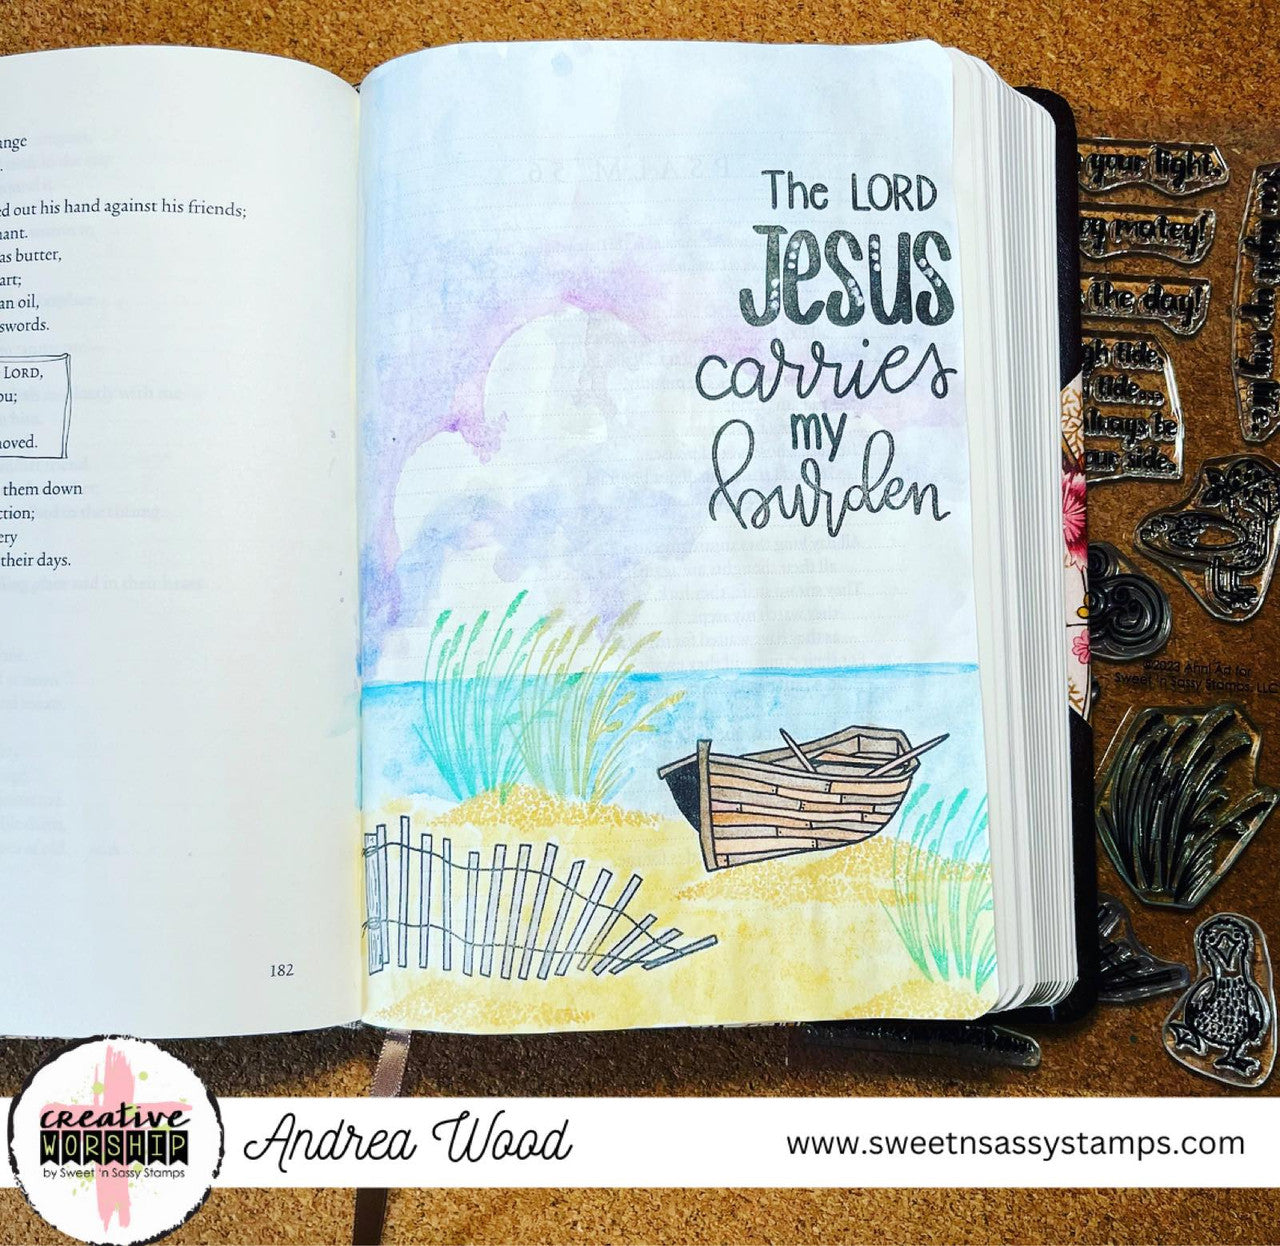 ange
ed out his hand against his friends;
nant.
as butter,
art;
an oil,
swords.
LORD,
ou;
oved.
them down
ction;
ery
their days.
182
PSALM 56
The LORD
Jesus
carries
my
burden
your light.
matey!
the day!
tide,
tide...
always be
our side.
©2023 Ahni Art for
Sweet 'n Sassy Stamps, LLC
creative
WORSHIP
by Sweet 'n Sassy Stamps
Andrea Wood
www.sweetnsassystamps.com